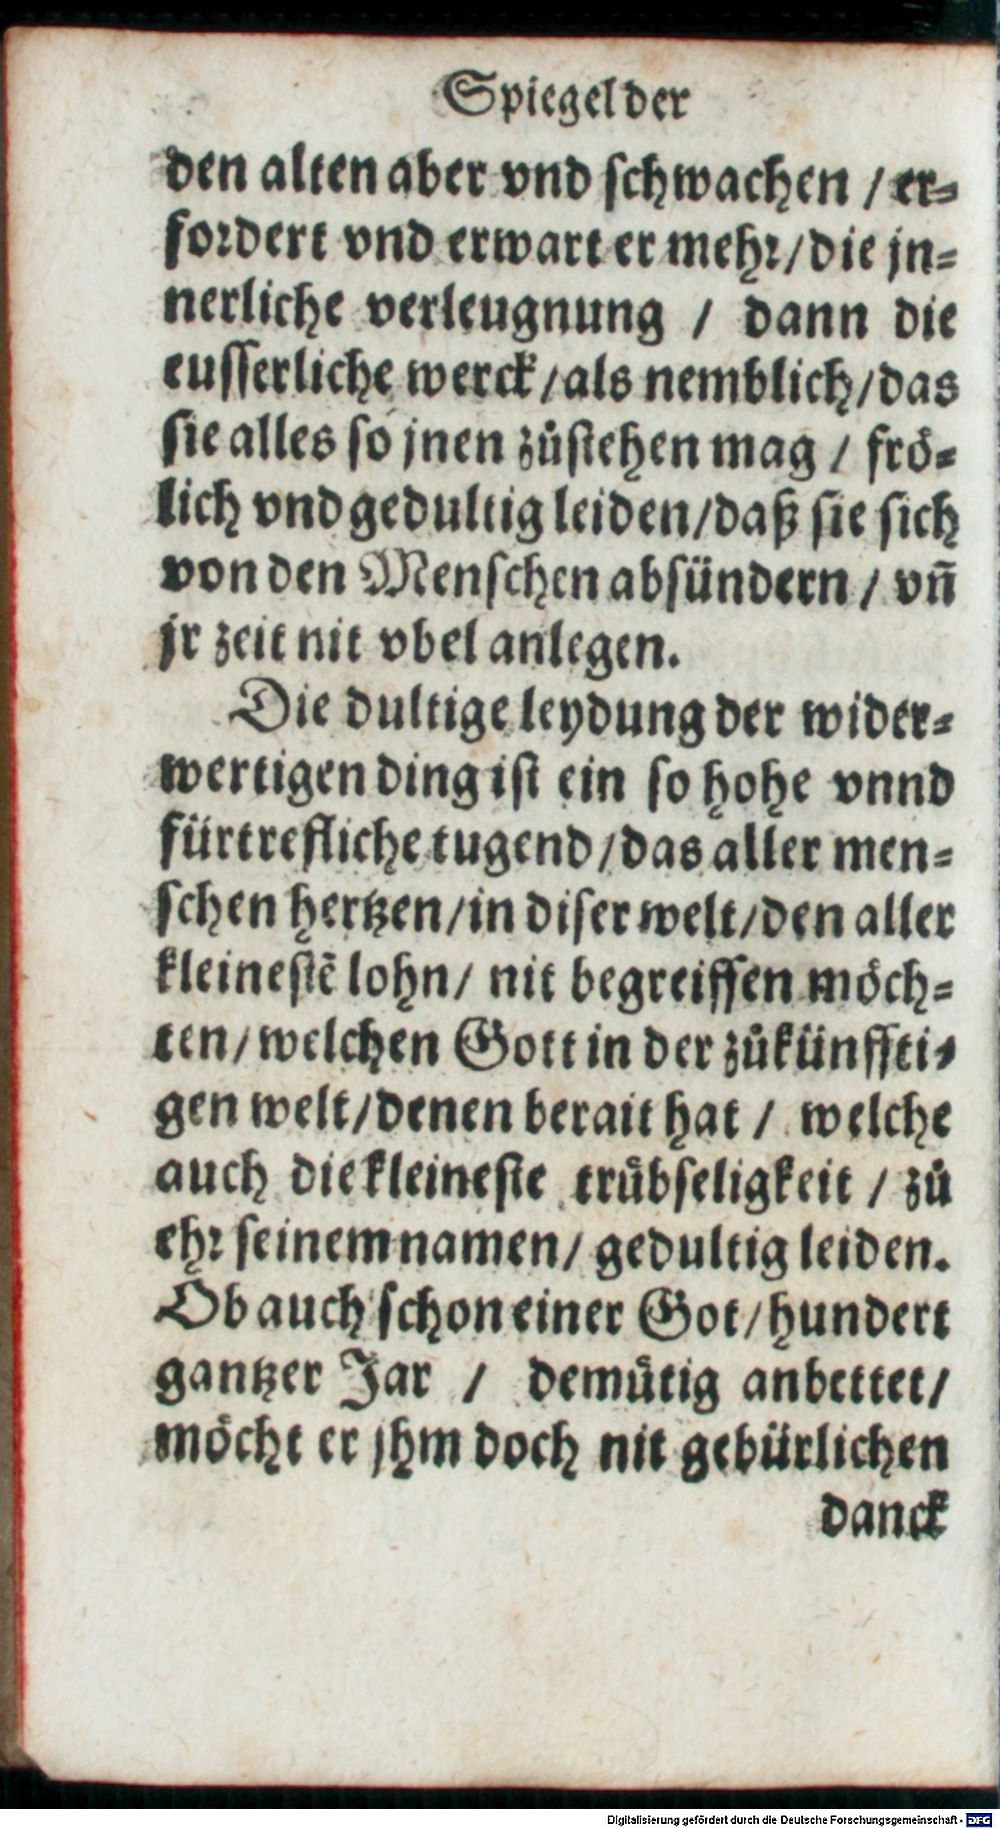 Spiegel der
den alten aber vnd schwachen / er⸗
fordert vnd erwart er mehr/die jn⸗
nerliche verleugnung / dann die
eusserliche werck/als nemblich/das
sie alles so jnen zůstehen mag / frö⸗
lich vnd gedultig leiden/daß sie sich
von den Menschen absündern / vn̄
jr zeit nit vbel anlegen.
Die dultige leydung der wider⸗
wertigen ding ist ein so hohe vnnd
fürtrefliche tugend/das aller men⸗
schen hertzen/in diser welt/den aller
kleinestē lohn/ nit begreiffen möch⸗
ten/welchen Gott in der zůkünffti⸗
gen welt/denen berait hat / welche
auch die kleineste trůbseligkeit / zů
ehr seinem namen/ gedultig leiden.
Ob auch schon einer Got/hundert
gantzer Jar / demůtig anbettet/
möcht er jhm doch nit gebürlichen
danck
Digitalisierung gefördert durch die Deutsche Forschungsgemeinschaft - DFG